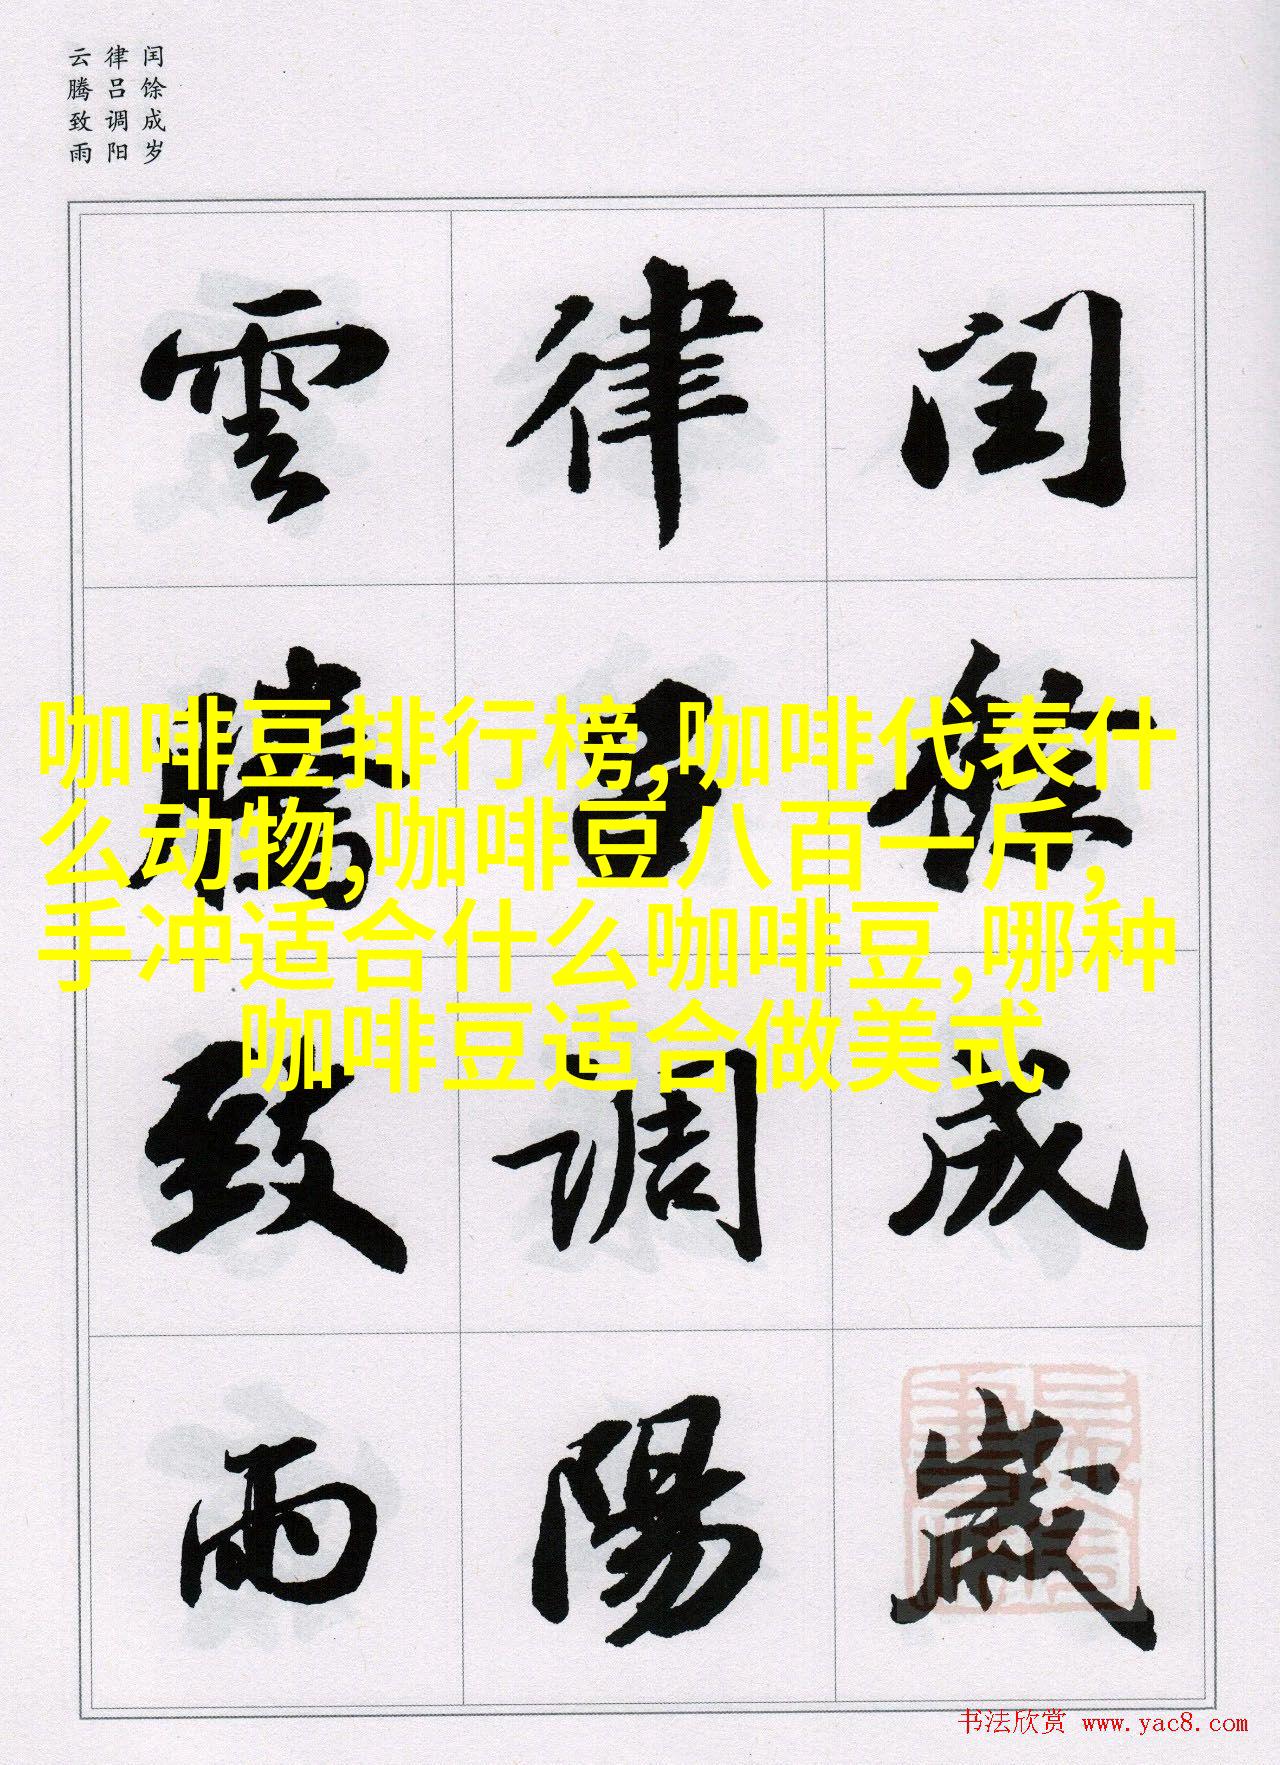 闰馀成岁
律吕调阳
云腾致雨
閏餘成歲
律吕調陽
雲騰致雨
咖啡豆排行榜,咖啡代表什
么动物,咖啡豆八百一斤,
手冲适合什么咖啡豆,哪种
咖啡豆适合做美式
书法欣赏 www.yac8.com